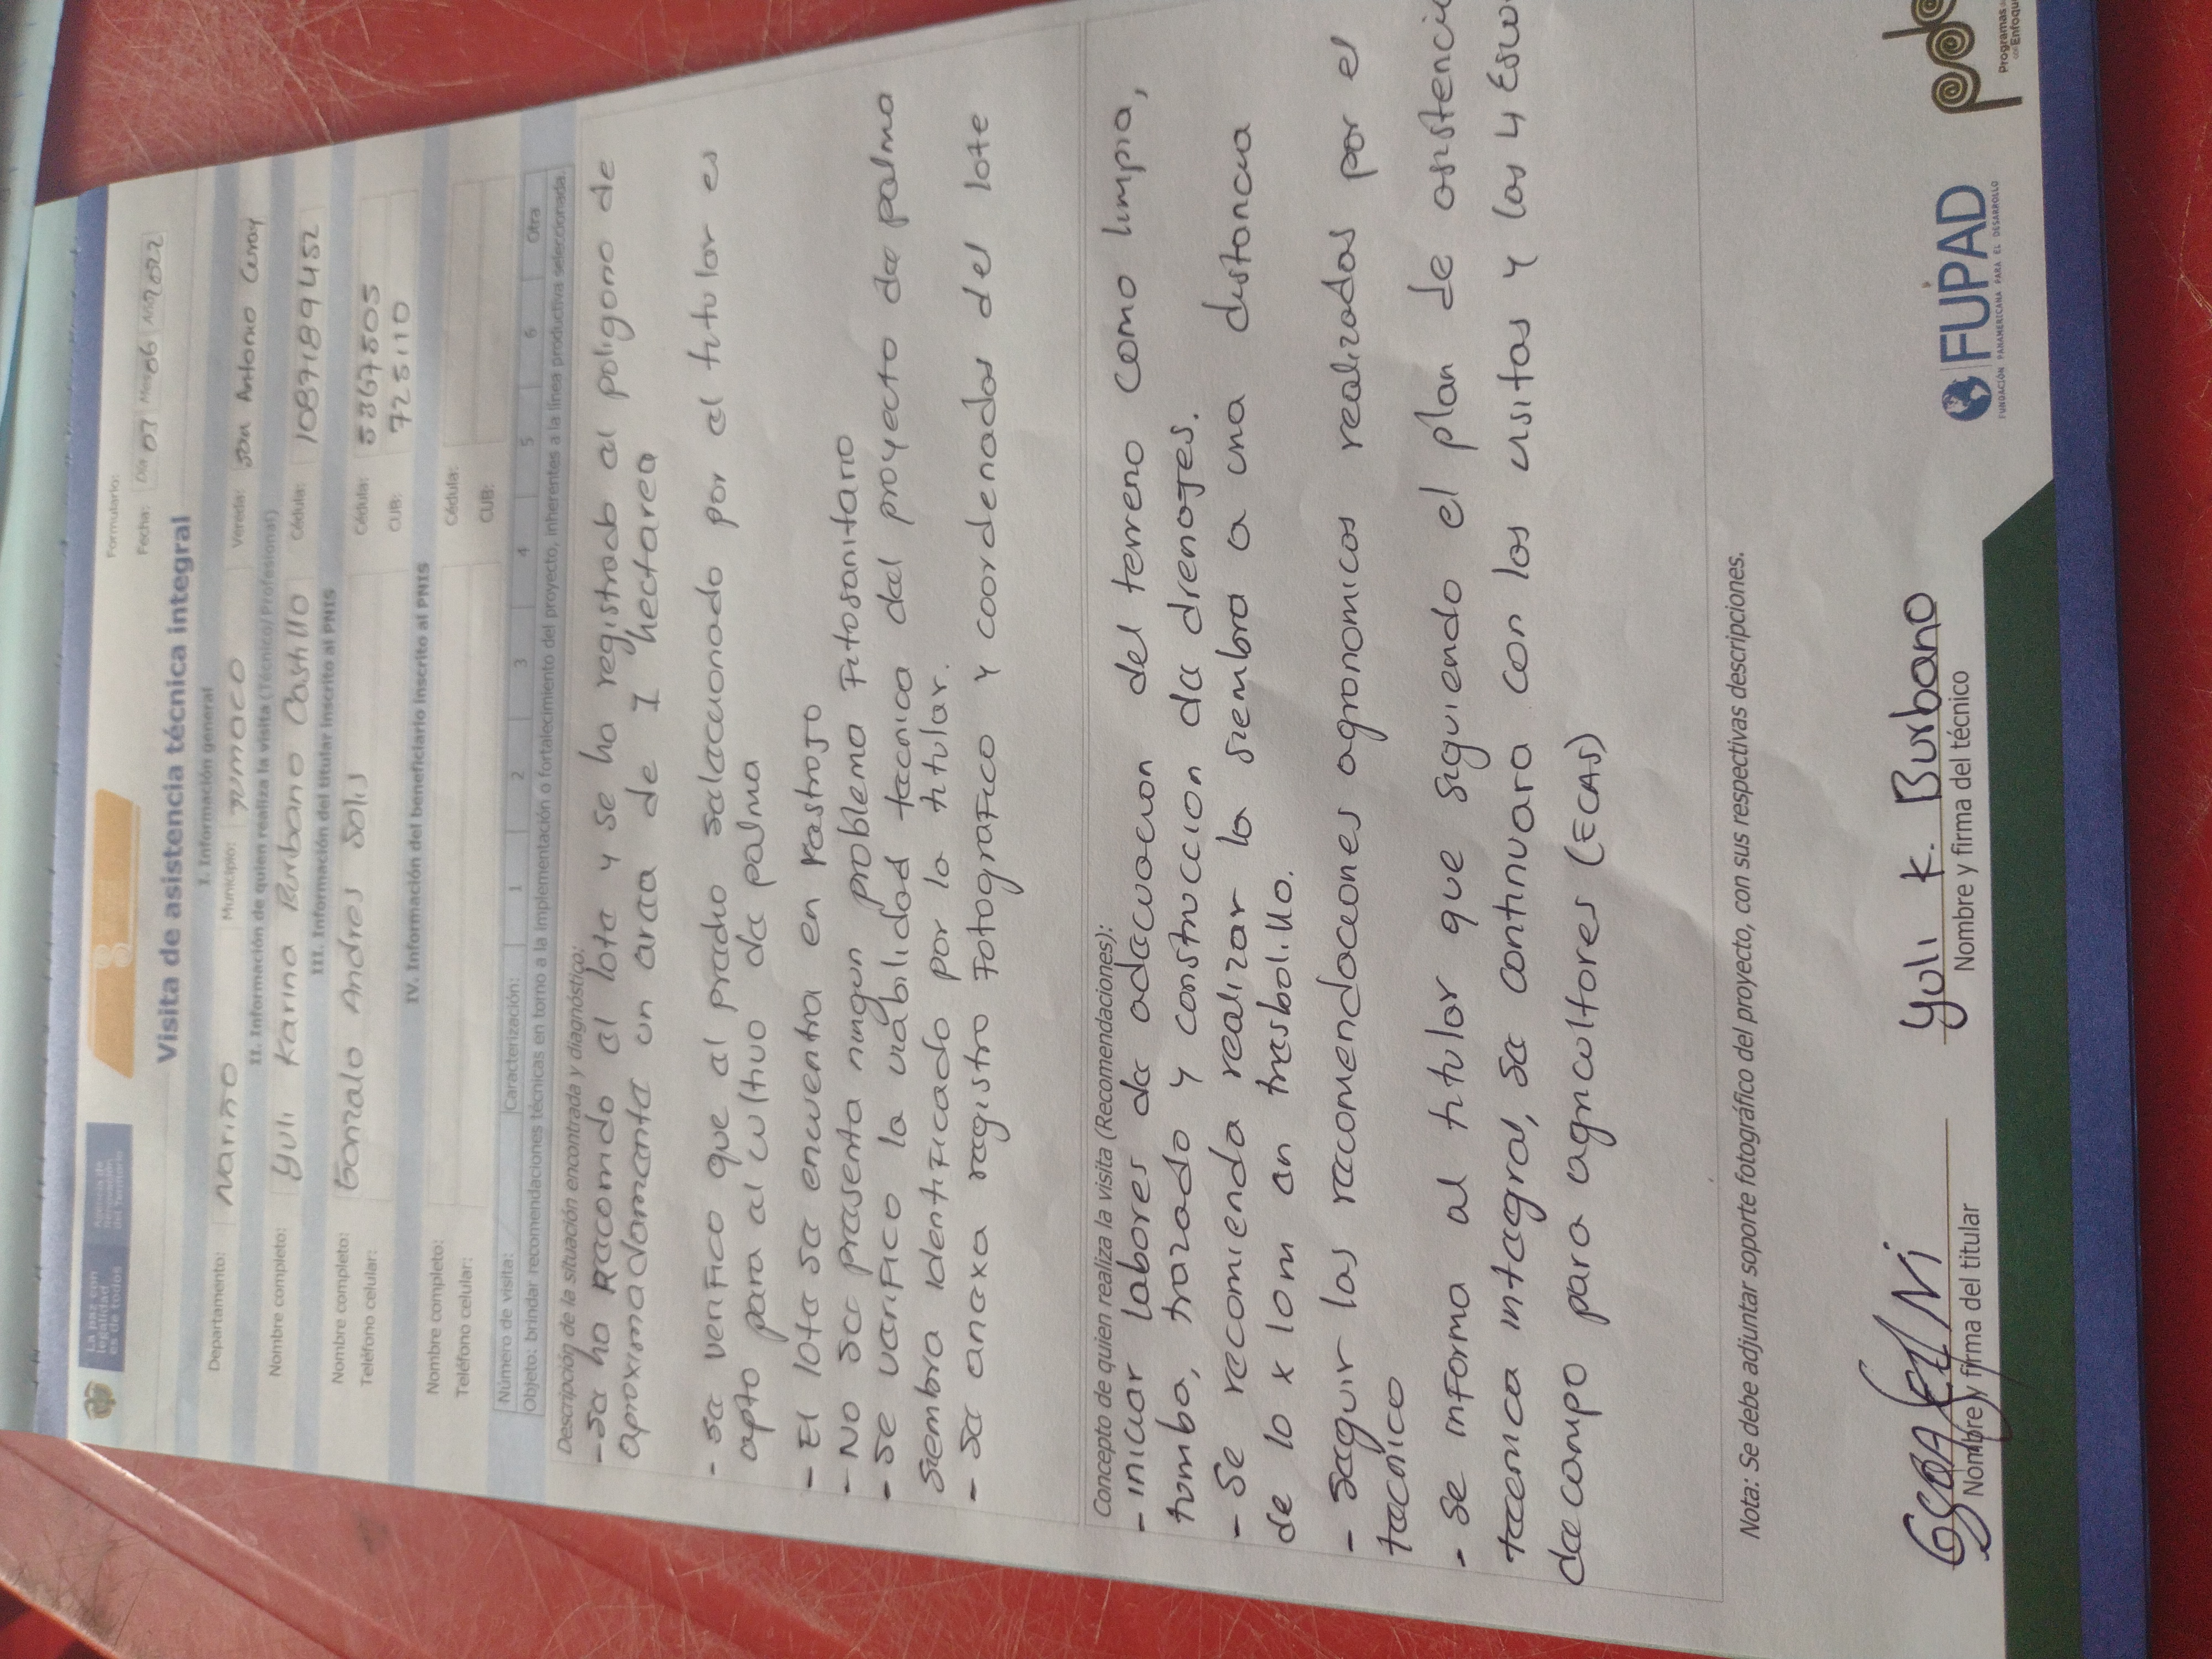 La paz con
legalidad
es de todos
Agencia de
Renovación
del Territorio
Formulario:
Fecha: Día 03 Mes 06 Año 2022
Visita de asistencia técnica integral
I. Información general
Departamento: Nariño Municipio: Tumaco Vereda: San Antonio Curay
II. Información de quien realiza la visita (Técnico/Profesional)
Nombre completo: Yuli Karina Burbano Castillo Cédula: 1087189452
III. Información del titular inscrito al PNIS
Nombre completo: Gonzalo Andres Solis Cédula: 5367505
Teléfono celular: CUB: 725110
IV. Información del beneficiario inscrito al PNIS
Nombre completo: Cédula:
Teléfono celular: CUB:
Número de visita: Caracterización: 1 2 3 4 5 6 Otra
Objeto: brindar recomendaciones técnicas en torno a la implementación o fortalecimiento del proyecto, inherentes a la línea productiva seleccionada.
Descripción de la situación encontrada y diagnóstico:
- Se ha Recorrido el lote y se ha registrado el poligono de
aproximadamente un area de 1 hectarea
- Se verifico que el predio seleccionado por el titular es
apto para el cultivo de palma
- El lote se encuentra en rastrojo
- No se presenta ningun problema Fitosanitario
- Se verifico la viabilidad tecnica del proyecto de palma
siembra identificado por lo titular.
- Se anexa registro Fotografico y coordenadas del lote
Concepto de quien realiza la visita (Recomendaciones):
- iniciar labores de adecuacion del terreno como limpia,
tumba, trazado y construccion de drenajes.
- Se recomienda realizar la siembra a una distancia
de 10 x 10m en tresbolillo.
- Seguir las recomendaciones agronomicas realizadas por el
tecnico
- se informa al titular que siguiendo el plan de asistencia
tecnica integral, se continuara con las visitas y las 4 Escu
de campo para agricultores (ECAS)
Nota: Se debe adjuntar soporte fotográfico del proyecto, con sus respectivas descripciones.
Yuli K. Burbano
Nombre y firma del titular Nombre y firma del técnico
FUPAD
FUNDACIÓN PANAMERICANA PARA EL DESARROLLO
Programas
Enfoque